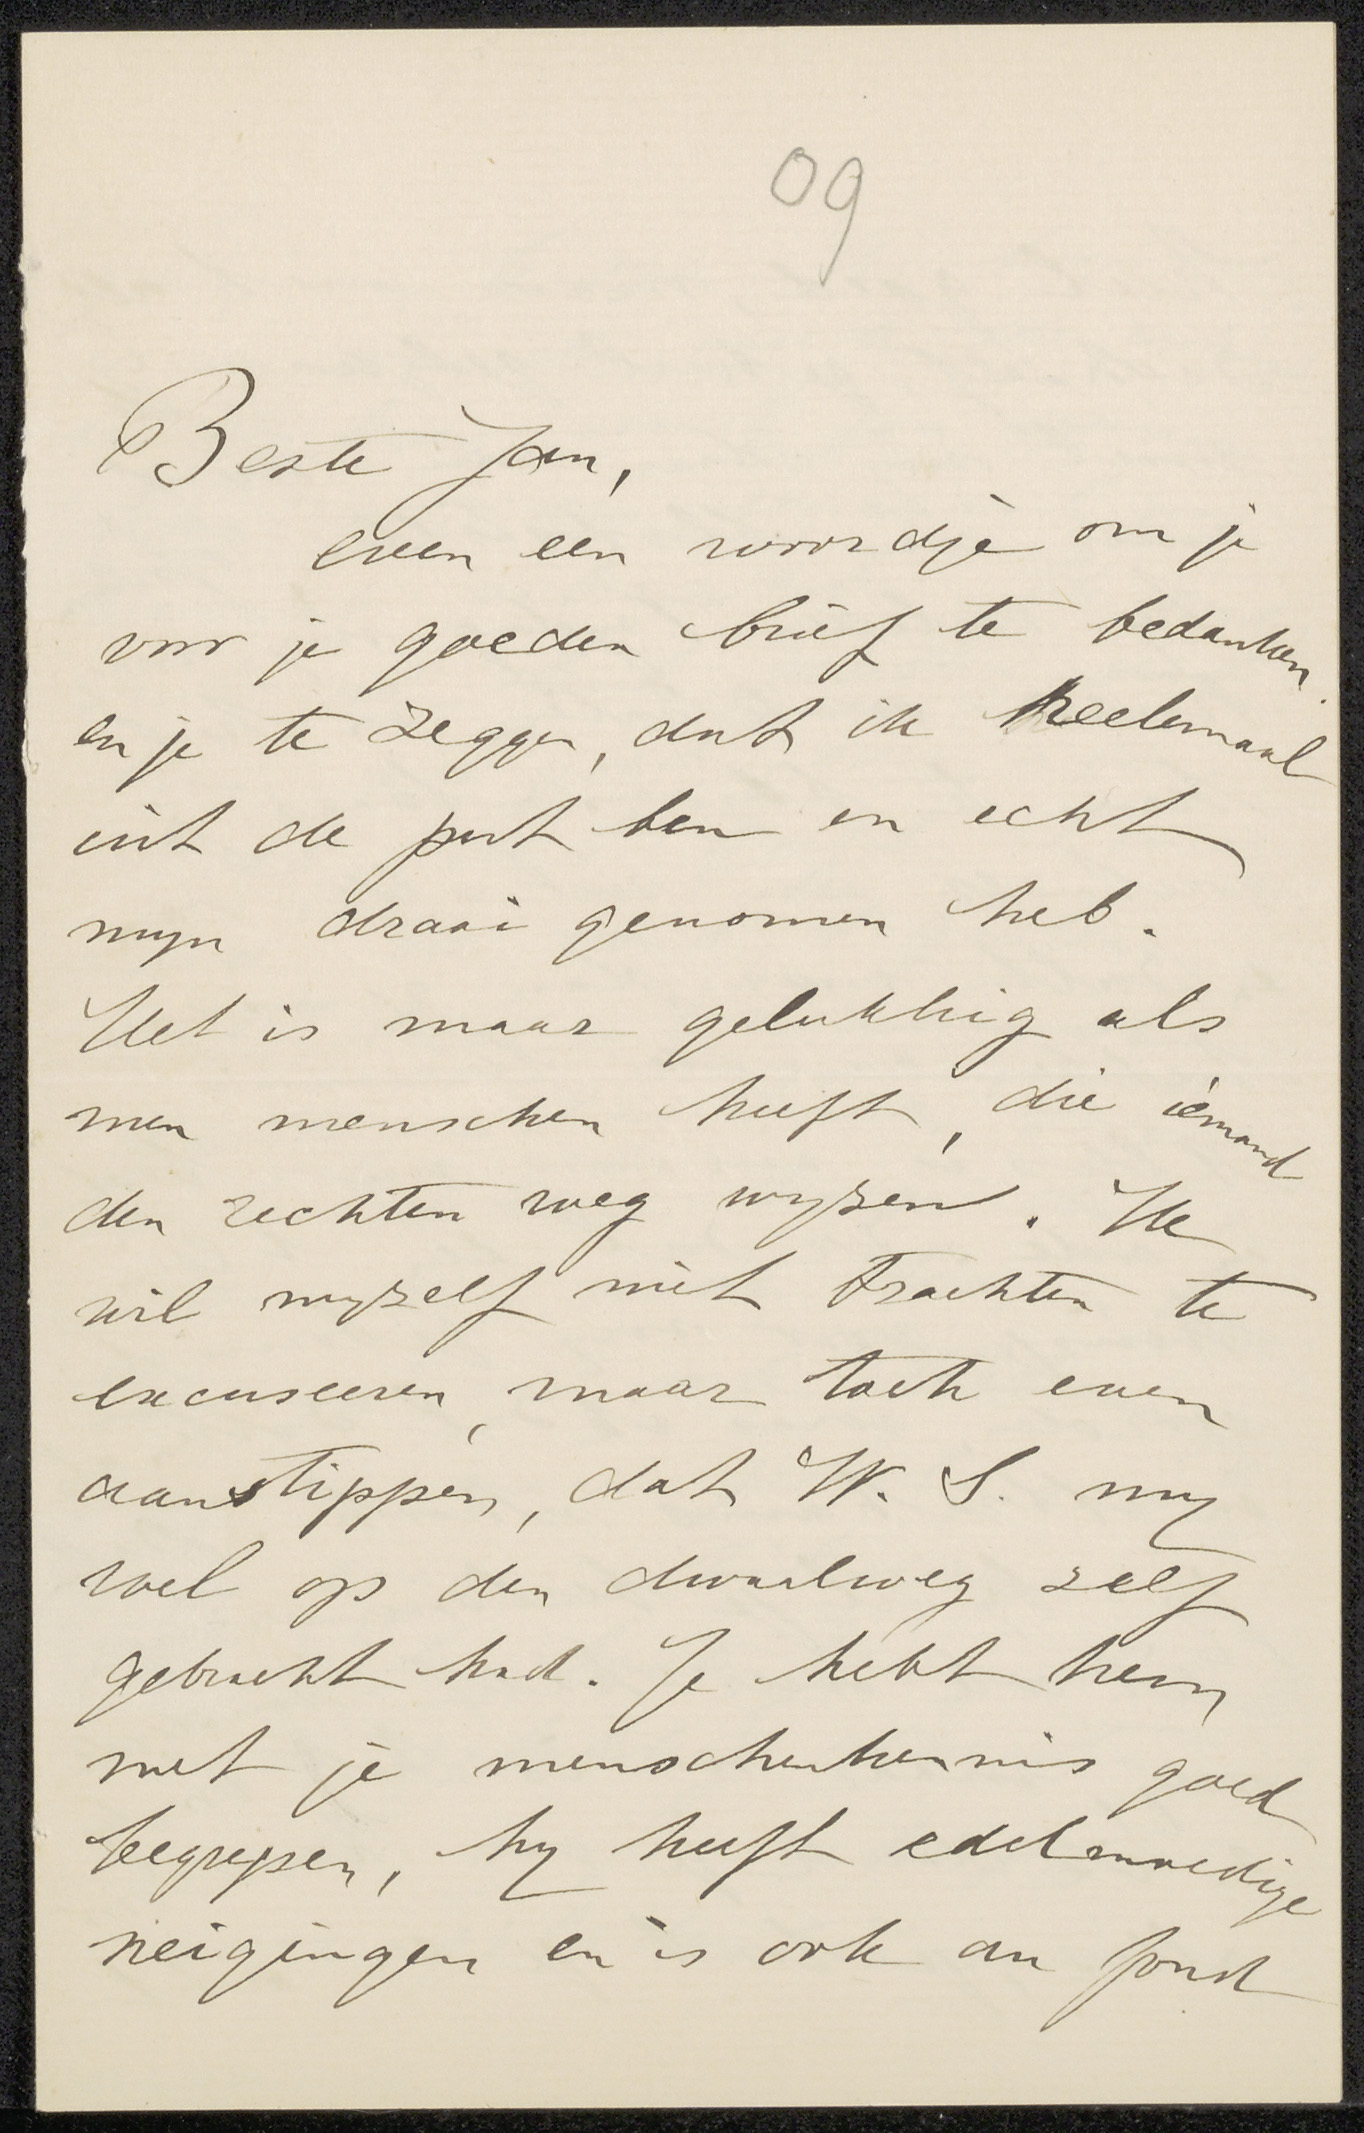 09
Beste Jan,
even een woordje om je
voor je goeden brief te bedanken
en je te zeggen, dat ik heelemaal
uit de put ben en echt
myn draai genomen heb.
Het is maar gelukkig als
men menschen heeft, die iemand
den rechten weg wyzen. Ik
wil myzelf niet trachten te
excuseeren, maar toch even
aanstippen, dat W. S. my
wel op den dwaalweg zelf
gebracht had. Je hebt hem
met je menschenkennis goed
begrepen, hy heeft edelmoedige
neigingen en is ook au fond